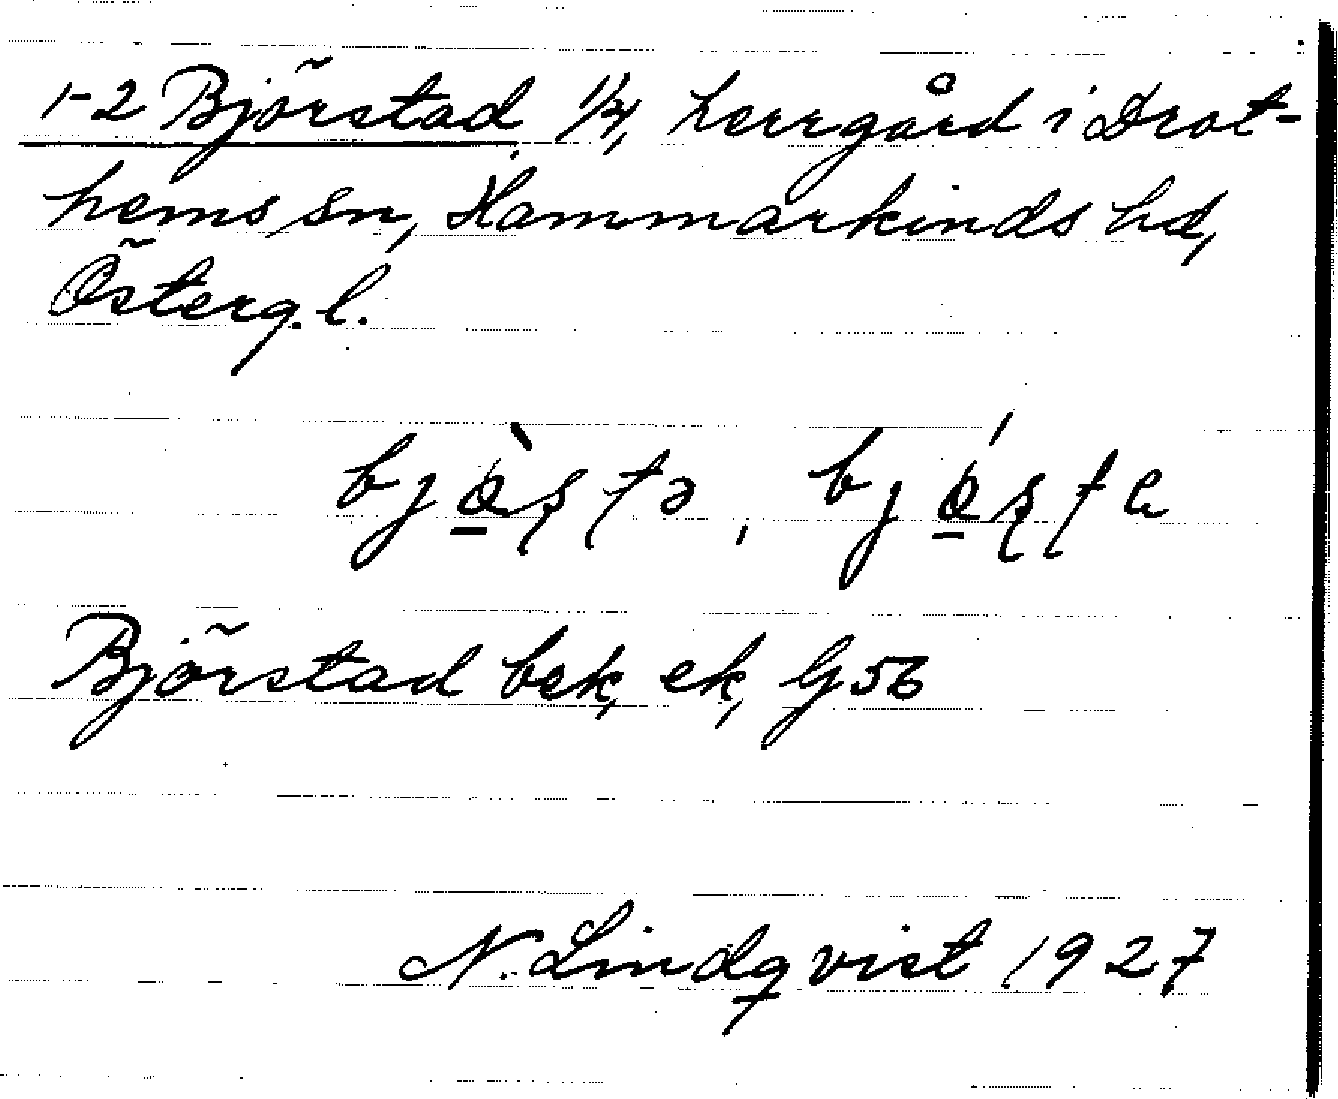 1-2 Björstad 1/4, herrgård i Drot-
hems sn, Hammarkinds hd,
Österg. l.
bjø̀ʂʈə, bjǿʂʈa
Björstad bek, ek, G 56
N. Lindqvist 1927